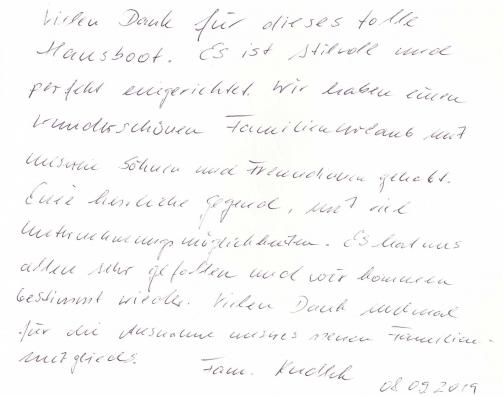 Vielen Dank für dieses tolle
Hausboot. Es ist stilvoll und
perfekt eingerichtet. Wir haben einen
wunderschönen Familienurlaub mit
unseren Söhnen und Freundinnen gehabt.
Eine herrliche Gegend, mit viel
Unternehmungsmöglichkeiten. Es hat uns
allen sehr gefallen und wir kommen
bestimmt wieder. Vielen Dank nochmal
für die Ausnahme unseres neuen Familien-
mitglieds.
Fam.
08.09.2019